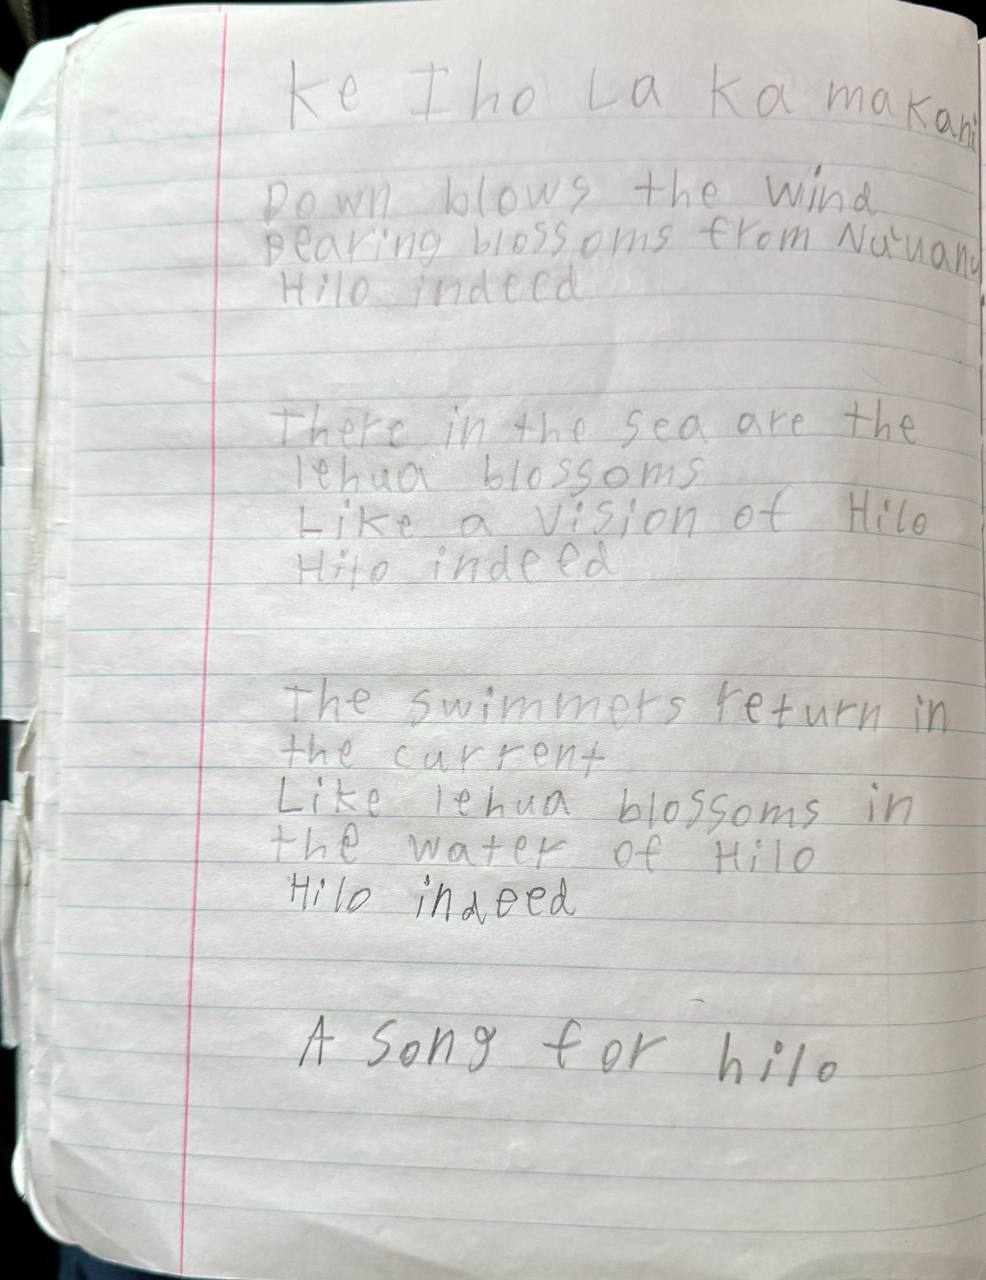 Ke Iho La Ka makani
Down blows the Wind
Bearing blossoms from Nu'uanu
Hilo indeed
There in the sea are the
lehua blossoms
Like a Vision of Hilo
Hilo indeed
The swimmers return in
the current
Like lehua blossoms in
the water of Hilo
Hilo indeed
A Song for hilo